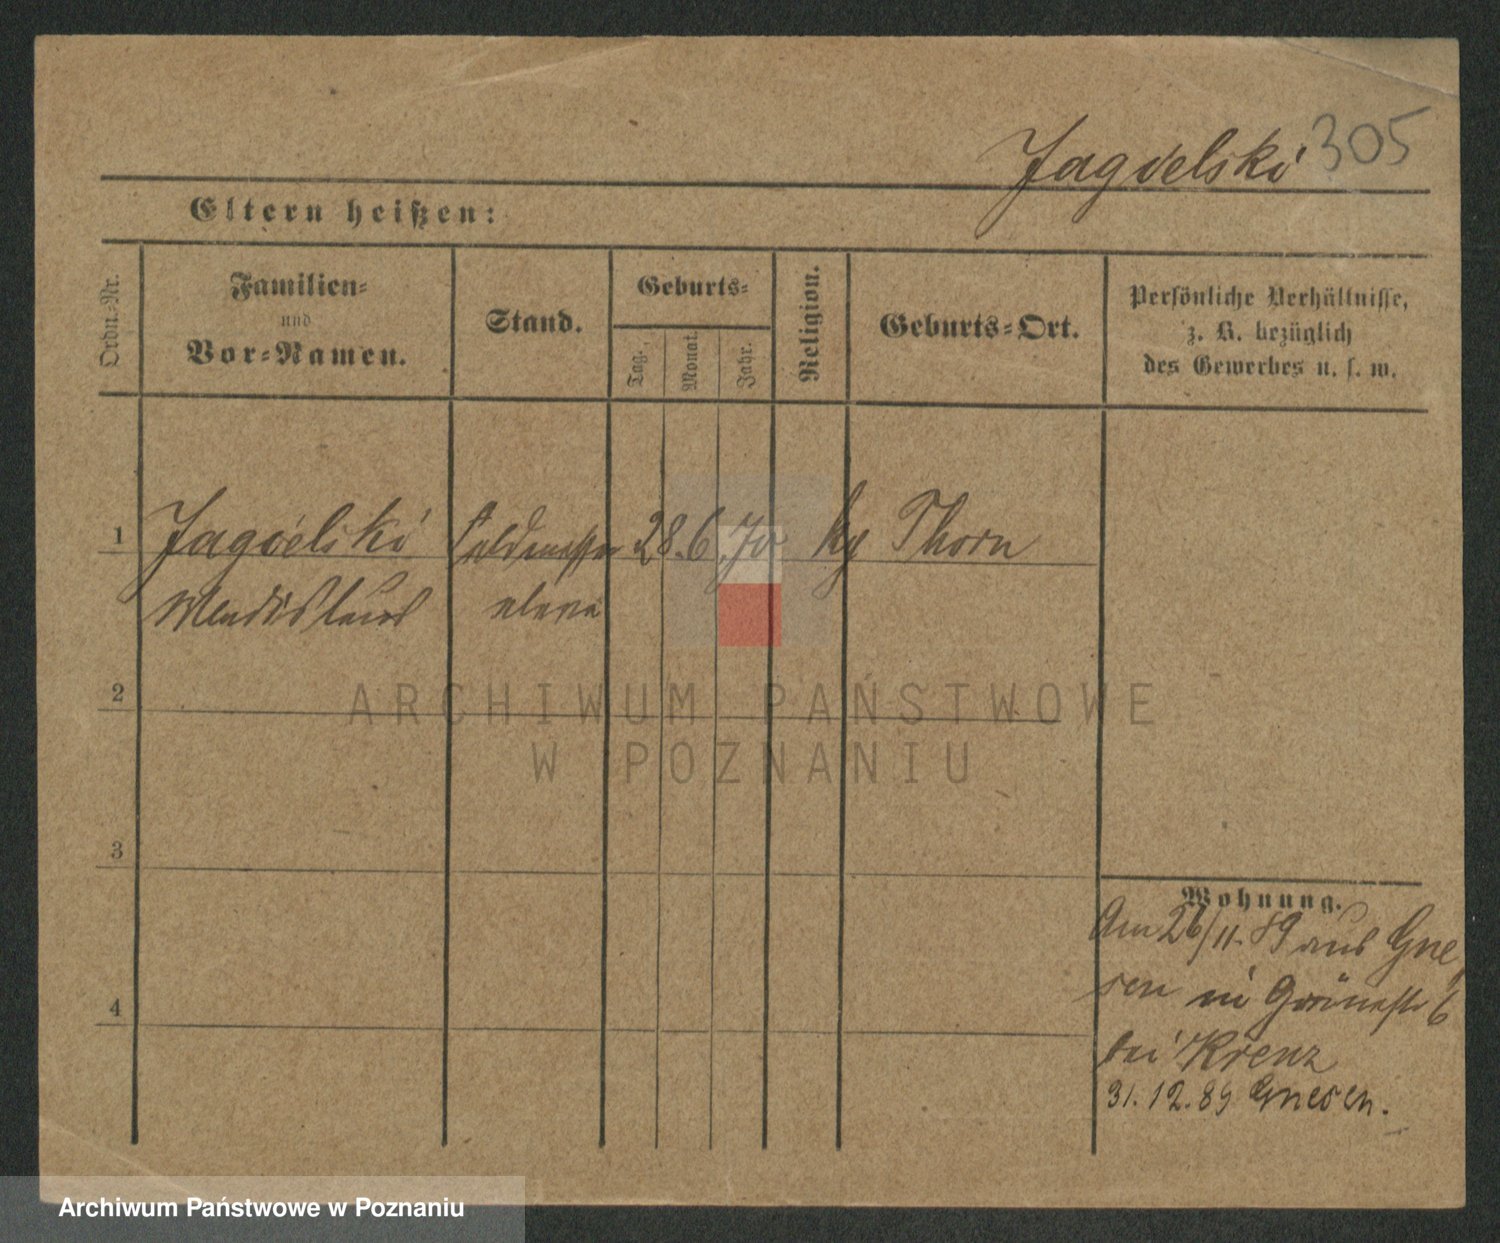 Jagielski 305
Eltern heißen:
Ordn.-Nr.
Familien-
und
Vor-Namen.
Stand.
Geburts-
Tag.
Monat.
Jahr.
Religion.
Geburts-Ort.
Persönliche Verhältnisse,
z. B. bezüglich
des Gewerbes u. s. w.
1 Jagielski Feldmesser 28. 6. 70 kg Thorn
Wladislaus eleve
2
3
4
ARCHIWUM PAŃSTWOWE
W POZNANIU
Wohnung.
Am 26/11. 89 aus Gne
sen in Grünestr 6
bei Krenz
31. 12. 89 Gnesen.
Archiwum Państwowe w Poznaniu